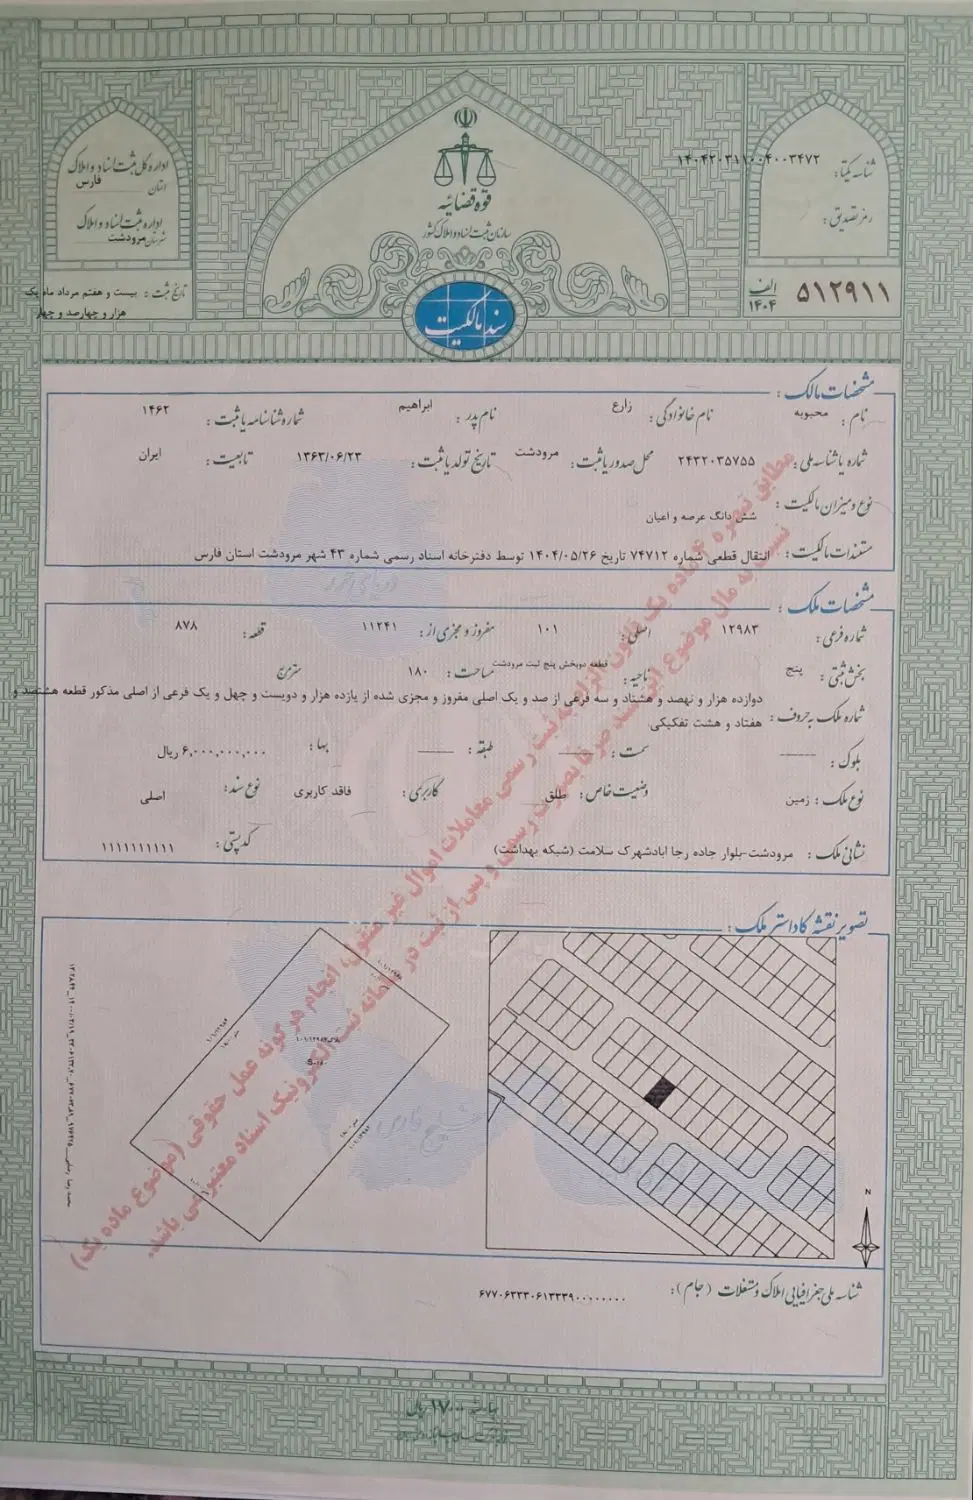 اداره کل ثبت اسناد و املاک
استان فارس
اداره ثبت اسناد و املاک
شهرستان مرودشت
تاریخ ثبت : بیست و هفتم مرداد ماه یک
هزار و چهارصد و چهار
قوه قضائیه
سازمان ثبت اسناد و املاک کشور
سند مالکیت
شناسه یکتا: ۱۴۰۴۲۰۳۱۱۰۰۴۰۰۳۴۷۲
رمز تصدیق :
الف
۱۴۰۴
۵۱۲۹۱۱
مشخصات مالک :
نام : محبوبه نام خانوادگی : زارع نام پدر : ابراهیم شماره شناسنامه یا ثبت : ۱۴۶۲
شماره یا شناسه ملی : ۲۴۳۲۰۳۵۷۵۵ محل صدور یا ثبت : مرودشت تاریخ تولد یا ثبت : ۱۳۶۳/۰۶/۲۳ تابعیت : ایران
نوع و میزان مالکیت : شش دانگ عرصه و اعیان
مستندات مالکیت : انتقال قطعی شماره ۷۴۷۱۲ تاریخ ۱۴۰۴/۰۵/۲۶ توسط دفترخانه اسناد رسمی شماره ۴۳ شهر مرودشت استان فارس
مشخصات ملک :
شماره فرعی : ۱۲۹۸۳ اصلی : ۱۰۱ مفروز و مجزی از : ۱۱۲۴۱ قطعه : ۸۷۸
بخش ثبتی : پنج ناحیه : قطعه دوبخش پنج ثبت مرودشت مساحت : ۱۸۰ متر مربع
شماره ملک به حروف : دوازده هزار و نهصد و هشتاد و سه فرعی از صد و یک اصلی مفروز و مجزی شده از یازده هزار و دویست و چهل و یک فرعی از اصلی مذکور قطعه هشتصد و
هفتاد و هشت تفکیکی
بلوک : سمت : طبقه : بها : ۶,۰۰۰,۰۰۰,۰۰۰ ریال
نوع ملک : زمین وضعیت خاص : طلق کاربری : فاقد کاربری نوع سند : اصلی
نشانی ملک : مرودشت-بلوار جاده رجا ابادشهرک سلامت (شبکه بهداشت) کد پستی : ۱۱۱۱۱۱۱۱۱۱
مطابق تبصره ۴ ماده یک قانون الزام به ثبت رسمی معاملات اموال غیر منقول، انجام هر گونه عمل حقوقی (موضوع ماده یک)
نسبت به مال موضوع این سند صرفا بصورت رسمی و پس از ثبت در سامانه ثبت الکترونیک اسناد معتبر می باشد.
تصویر نقشه کاداستر ملک :
دریای خزر
خلیج فارس
N
شناسه ملی جغرافیایی املاک و مستغلات (جام) : ۶۷۷۰۶۳۳۳۰۶۱۳۳۳۹۰۰۰۰۰۰۰۰